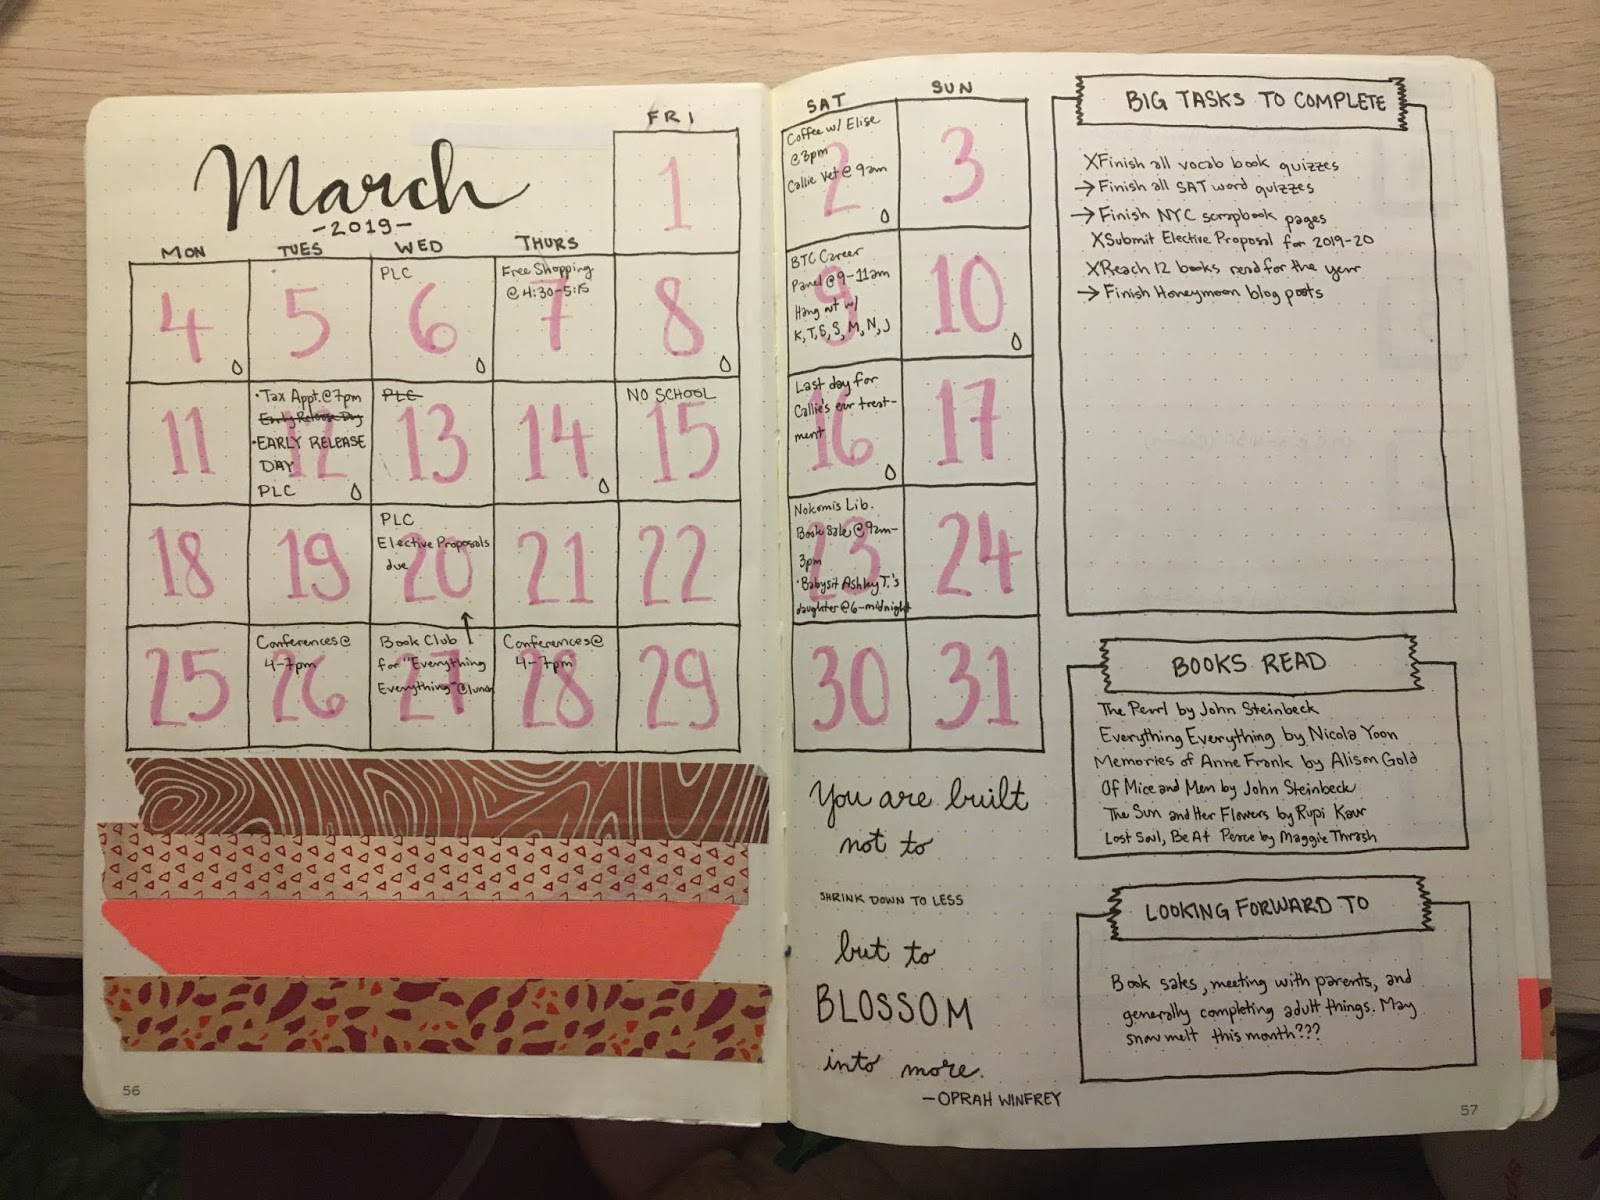 March
-2019-
MON
TUES
WED
THURS
FRI
1
4
5
PLC
6
Free Shopping
@ 4:30-5:15
7
8
11
·Tax Appt.@7pm
Early Release Day
·EARLY RELEASE
DAY
PLC
12
PLC
13
14
NO SCHOOL
15
18
19
PLC
Elective Proposals
due
20
21
22
25
Conferences@
4-7pm
26
Book Club
for "Everything
Everything" @lunch
27
Conferences@
4-7pm
28
29
56
SAT
SUN
Coffee w/ Elise
@3pm
Callie Vet @ 9am
2
3
BTC Career
Panel @ 9-11am
Hang out w/
K, T, S, S, M, N, J
9
10
Last day for
Callie's ear treat-
ment
16
17
Nokomis Lib.
Book Sale @ 9am-
3pm
·Babysit Ashley T.'s
daughter@6-midnight
23
24
30
31
You are built
not to
SHRINK DOWN TO LESS
but to
BLOSSOM
into more.
-OPRAH WINFREY
BIG TASKS TO COMPLETE
XFinish all vocab book quizzes
→Finish all SAT word quizzes
→Finish NYC scrapbook pages
XSubmit Elective Proposal for 2019-20
XReach 12 books read for the year
→Finish Honeymoon blog posts
BOOKS READ
The Pearl by John Steinbeck
Everything Everything by Nicola Yoon
Memories of Anne Frank by Alison Gold
Of Mice and Men by John Steinbeck
The Sun and Her Flowers by Rupi Kaur
Lost Soul, Be At Peace by Maggie Thrash
LOOKING FORWARD TO
Book sales, meeting with parents, and
generally completing adult things. May
snow melt this month???
57